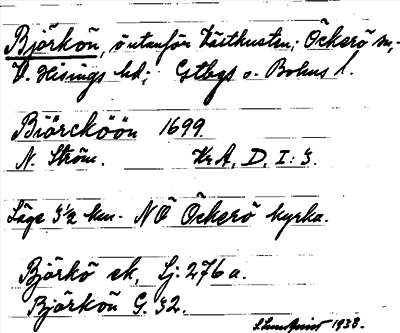 Björkön, ö utanför Västkusten; Öckerö sn,
V. Hisings hd; Gtbgs o. Bohus l.
Biörcköön 1699.
N. Ström. Kr A, D. I: 3.
Läge 3 1/2 km. NÖ Öckerö kyrka.
Björkö sk, Lj. 276 a.
Björkön G. 32.
1938.